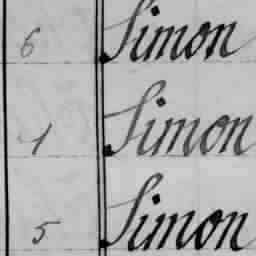 6 Simon
1 Simon
5 Simon